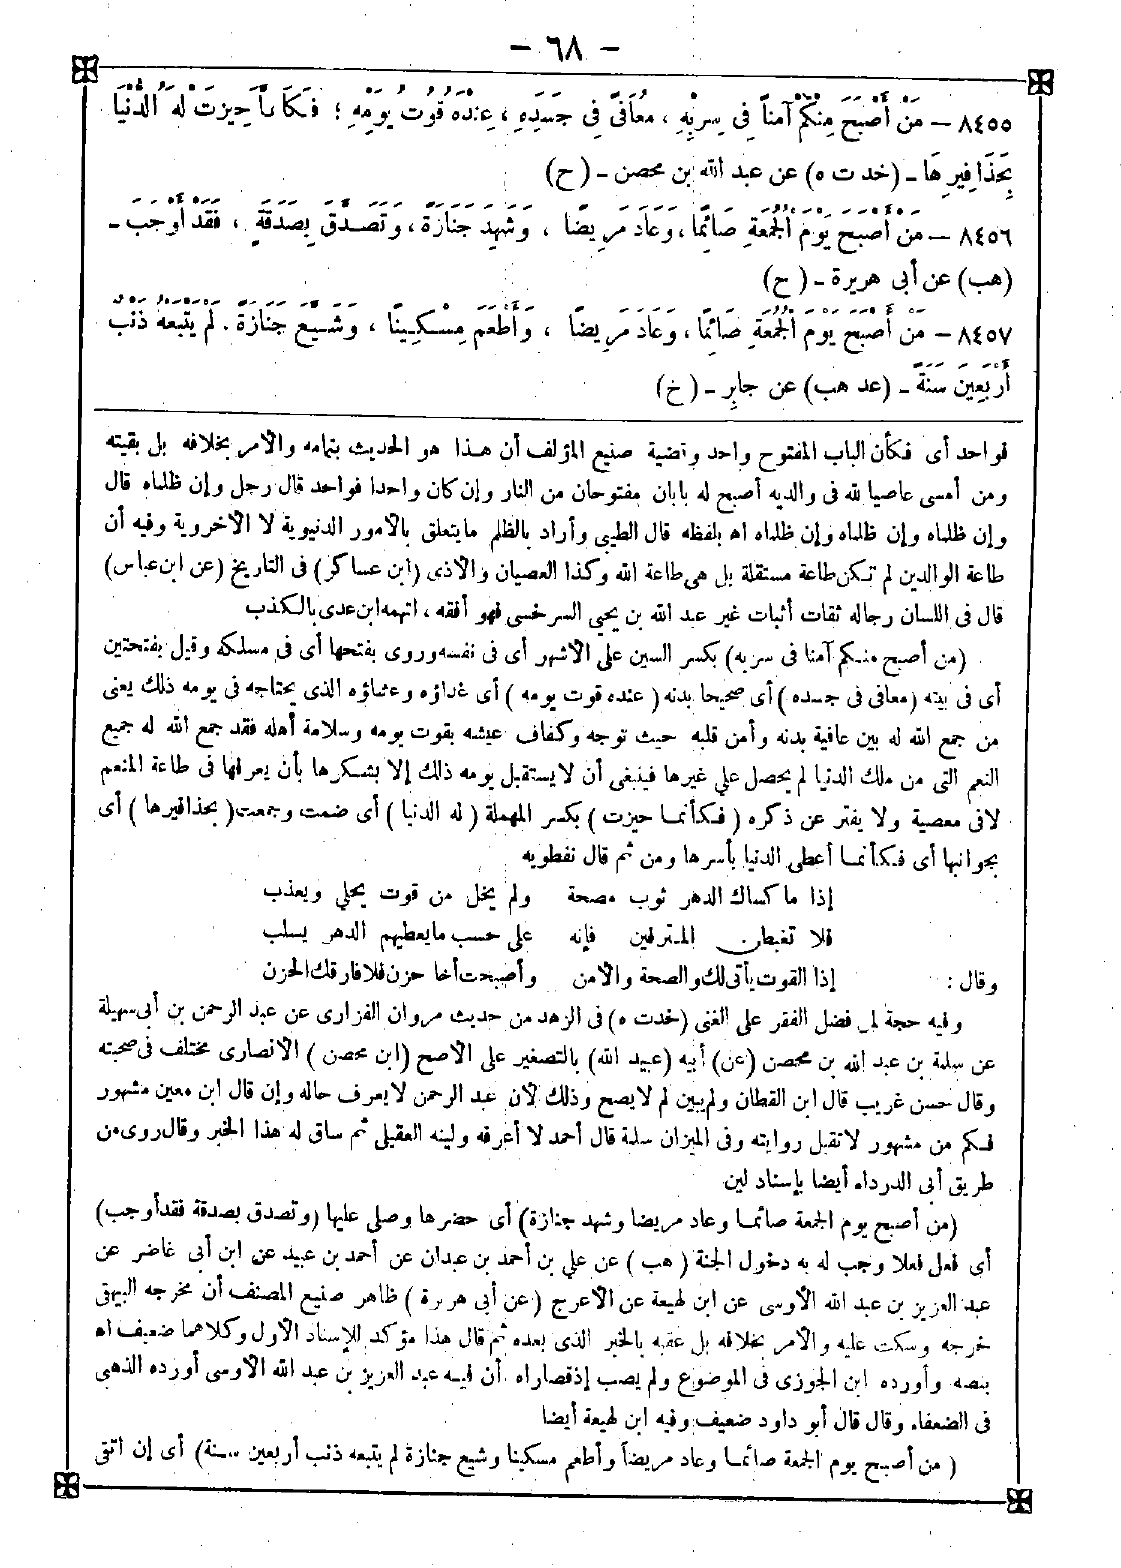 - ٦٨ -
٨٤٥٥ - مَنْ أَصْبَحَ مِنْكُمْ آمِنًا فِي سِرْبِهِ، مُعَافًى فِي جَسَدِهِ، عِنْدَهُ قُوتُ يَوْمِهِ؛ فَكَأَنَّمَا حِيزَتْ لَهُ الدُّنْيَا
بِحَذَافِيرِهَا - (خد ت ه) عن عبد الله بن محصن - (ح)
٨٤٥٦ - مَنْ أَصْبَحَ يَوْمَ الْجُمُعَةِ صَائِمًا، وَعَادَ مَرِيضًا، وَشَهِدَ جَنَازَةً، وَتَصَدَّقَ بِصَدَقَةٍ، فَقَدْ أَوْجَبَ -
(هب) عن أبى هريرة - (ح)
٨٤٥٧ - مَنْ أَصْبَحَ يَوْمَ الْجُمُعَةِ صَائِمًا، وَعَادَ مَرِيضًا، وَأَطْعَمَ مِسْكِينًا، وَشَيَّعَ جَنَازَةً. لَمْ يَتْبَعْهُ ذَنْبُ
أَرْبَعِينَ سَنَةً - (عد هب) عن جابِرٍ - (خ)
فواحد أى فكأن الباب المفتوح واحد وقضية صنيع المؤلف أن هذا هو الحديث بتمامه والأمر بخلافه بل بقيته
ومن أمسى عاصيا لله فى والديه أصبح له بابان مفتوحان من النار وإن كان واحدا فواحد قال رجل وإن ظلماه قال
وإن ظلماه وإن ظلماه وإن ظلماه اه بلفظه قال الطيبى وأراد بالظلم ما يتعلق بالأمور الدنيوية لا الأخروية وفيه أن
طاعة الوالدين لم تكن طاعة مستقلة بل هى طاعة الله وكذا العصيان والأذى (ابن عساكر) فى التاريخ (عن ابن عباس)
قال فى اللسان رجاله ثقات أثبات غير عبد الله بن يحيى السرخسى فهو أفقه، اتهمه ابن عدى بالكذب
(من أصبح منكم آمنا فى سربه) بكسر السين على الأشهر أى فى نفسه وروى بفتحها أى فى مسلكه وقيل بفتحتين
أى فى بيته (معافى فى جسده) أى صحيحا بدنه (عنده قوت يومه) أى غداؤه وعشاؤه الذى يحتاجه فى يومه ذلك يعنى
من جمع الله له بين عافية بدنه وأمن قلبه حيث توجه وكفاف عيشه بقوت يومه وسلامة أهله فقد جمع الله له جميع
النعم التى من ملك الدنيا لم يحصل على غيرها فينبغى أن لا يستقبل يومه ذلك إلا بشكرها بأن يصرفها فى طاعة المنعم
لا فى معصية ولا يفتر عن ذكره (فكأنما حيزت) بكسر المهملة (له الدنيا) أى ضمت وجمعت (بحذافيرها) أى
بجوانبها أى فكأنما أعطى الدنيا بأسرها ومن ثم قال نفطويه
إذا ما كساك الدهر ثوب مصحة ولم يخل من قوت يحلى ويعذب
فلا تغبطن المترفين فإنه على حسب ما يعطيهم الدهر يسلب
وقال: إذا القوت يأتى لك والصحة والأمن وأصبحت أخا حزن فلا فارقك الحزن
وفيه حجة لمن فضل الفقر على الغنى (خد ت ه) فى الزهد من حديث مروان الفزارى عن عبد الرحمن بن أبى سهيلة
عن سلمة بن عبد الله بن محصن (عن) أبيه (عبيد الله) بالتصغير على الأصح (ابن محصن) الأنصارى مختلف فى صحبته
وقال حسن غريب قال ابن القطان ولم يبين لم لا يصح وذلك لأن عبد الرحمن لا يعرف حاله وإن قال ابن معين مشهور
فكم من مشهور لا تقبل روايته وفى الميزان سلمة قال أحمد لا أعرفه ولينه العقيلى ثم ساق له هذا الخبر وقال روى من
طريق أبى الدرداء أيضا بإسناد لين
(من أصبح يوم الجمعة صائما وعاد مريضا وشهد جنازة) أى حضرها وصلى عليها (وتصدق بصدقة فقد أوجب)
أى فعل فعلا وجب له به دخول الجنة (هب) عن على بن أحمد بن عبدان عن أحمد بن عبيد عن ابن أبى غاضر عن
عبد العزيز بن عبد الله الأوسى عن ابن لهيعة عن الأعرج (عن أبى هريرة) ظاهر صنيع المصنف أن مخرجه البيهقى
خرجه وسكت عليه والأمر بخلافه بل عقبه بالخبر الذى بعده ثم قال هذا مؤكد للإسناد الأول وكلاهما ضعيف اه
بنصه وأورده ابن الجوزى فى الموضوع ولم يصب إذ قصاراه أن فيه عبد العزيز بن عبد الله الأوسى أورده الذهبى
فى الضعفاء وقال قال أبو داود ضعيف وفيه ابن لهيعة أيضا
(من أصبح يوم الجمعة صائما وعاد مريضاً وأطعم مسكينا وشيع جنازة لم يتبعه ذنب أربعين سنة) أى إن اتقى